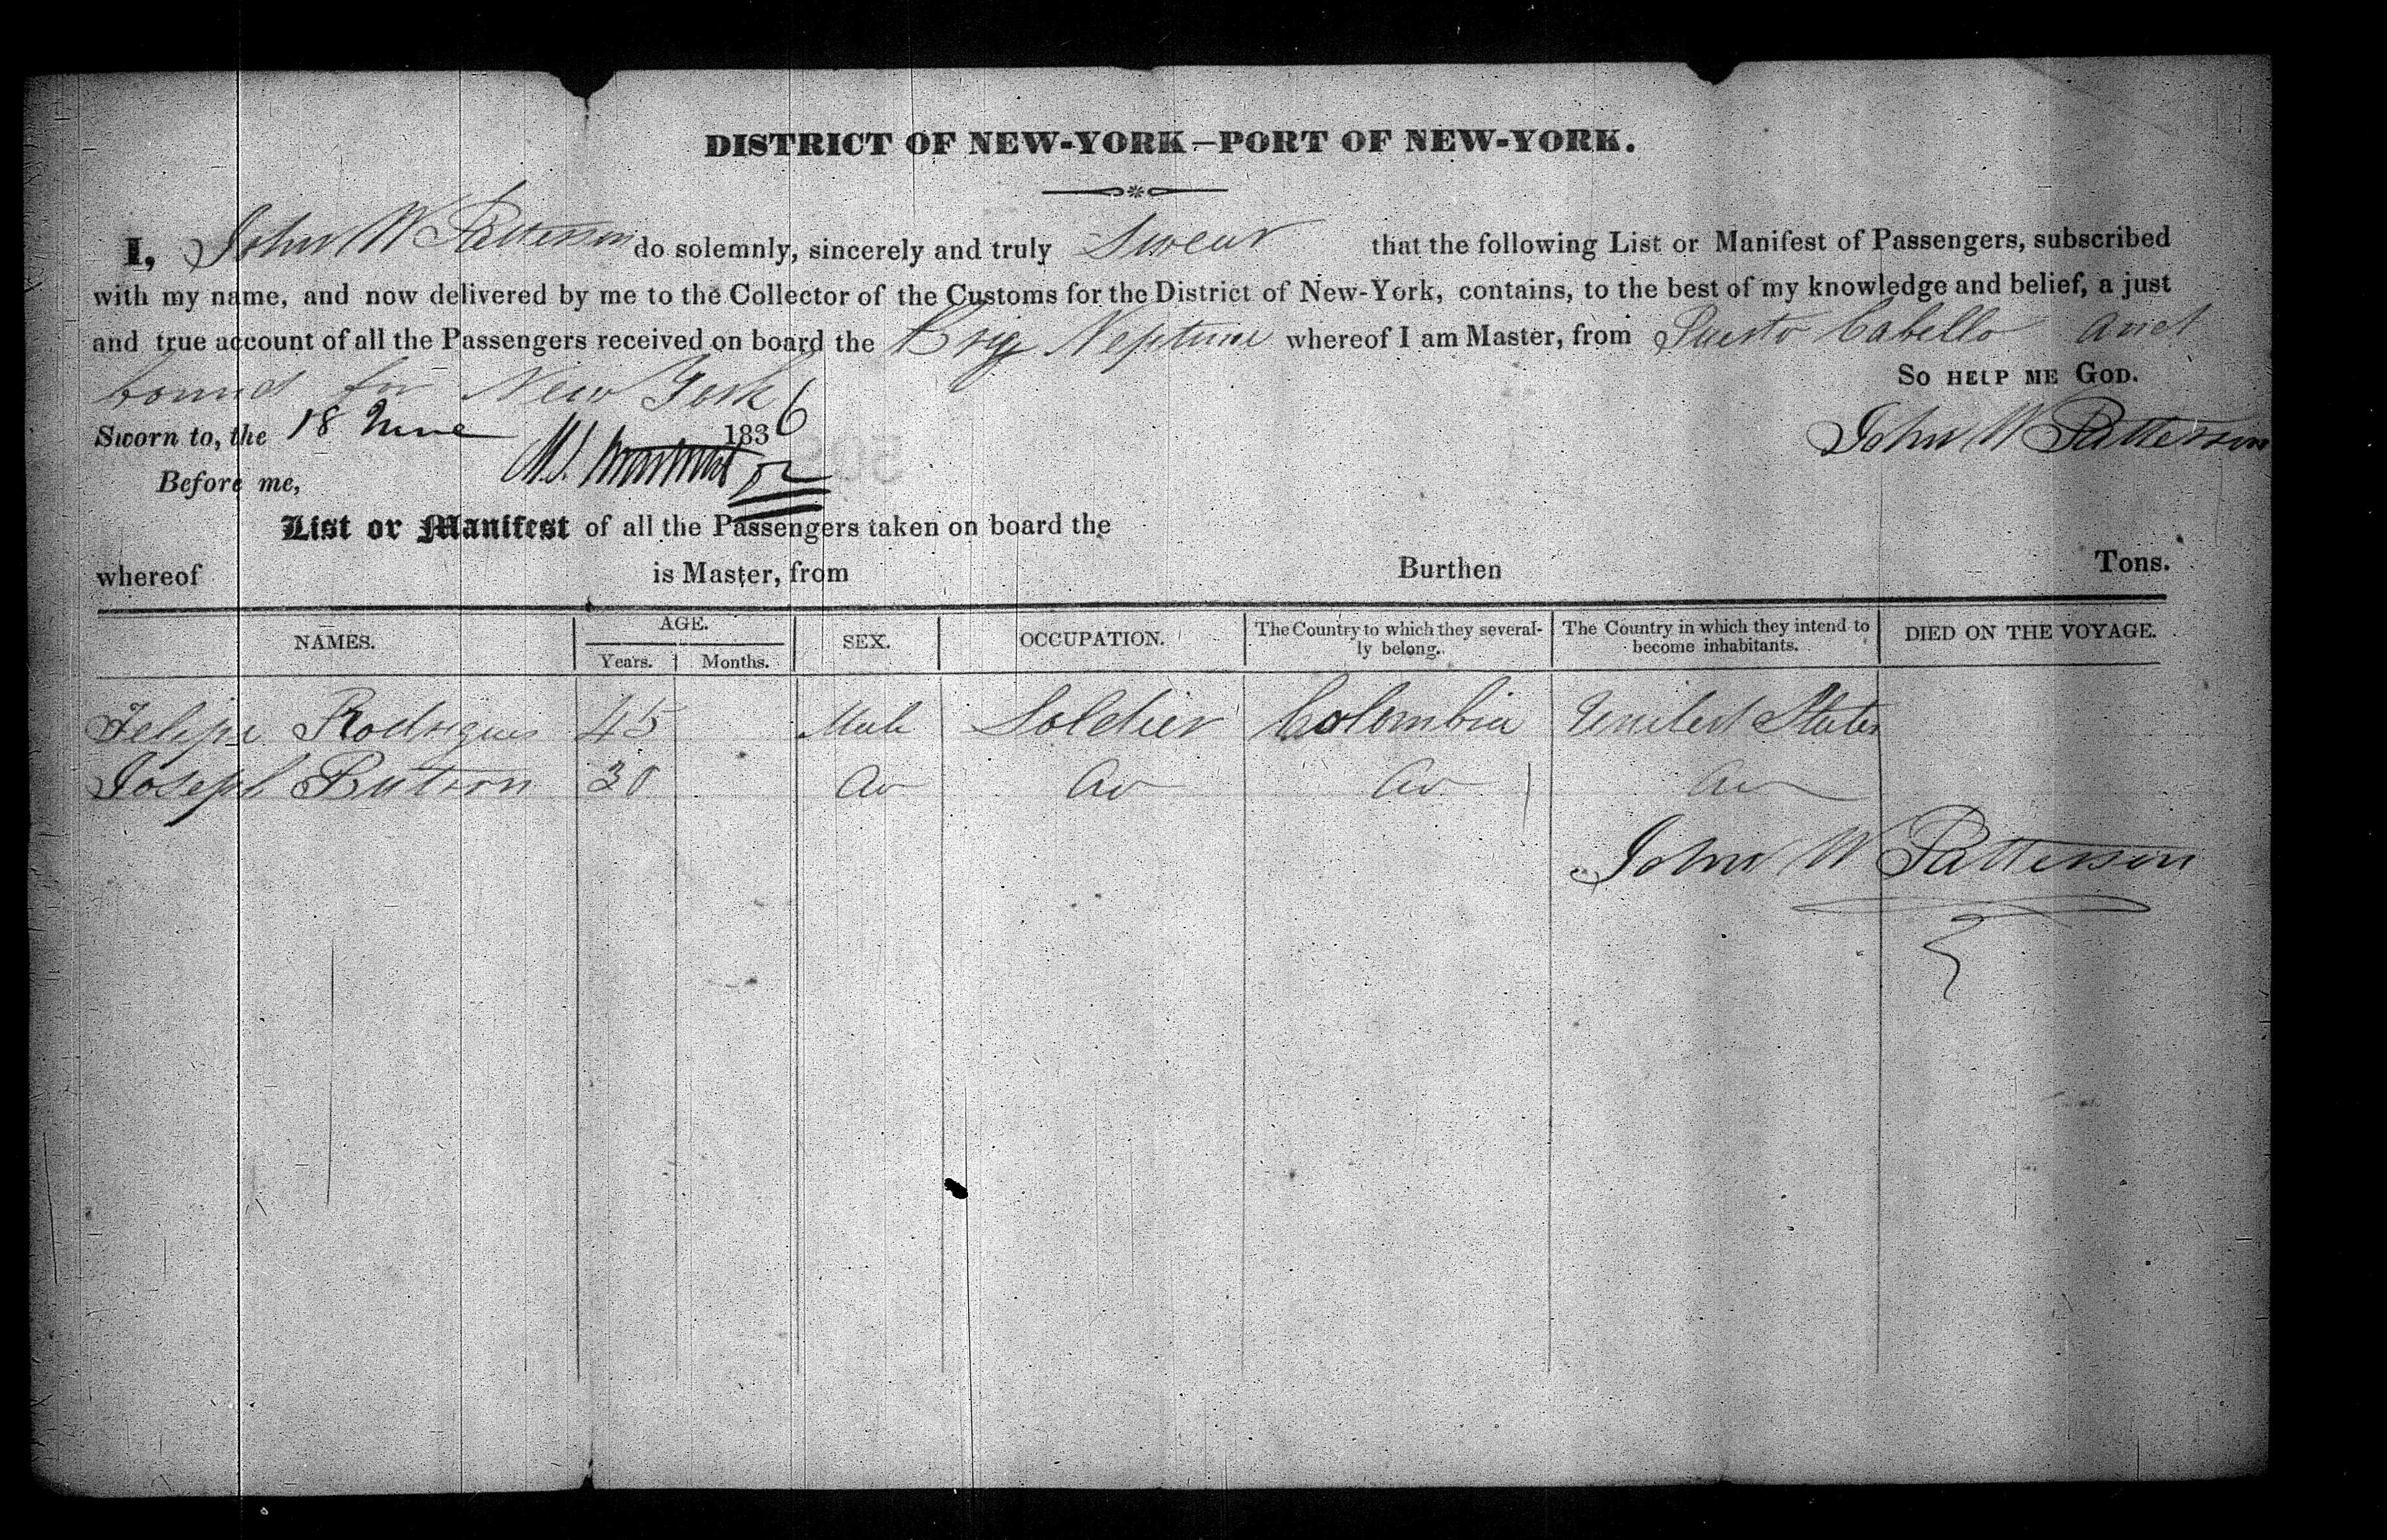 DISTRICT OF NEW-YORK—PORT OF NEW-YORK.
I, John W Patterson do solemnly, sincerely and truly Swear that the following List or Manifest of Passengers, subscribed
with my name, and now delivered by me to the Collector of the Customs for the District of New-York, contains, to the best of my knowledge and belief, a just
and true account of all the Passengers received on board the Brig Neptune whereof I am Master, from Puerto Cabello and
bound for New York
So help me God.
Sworn to, the 18 June 1836
John W Patterson
Before me,
List or Manifest of all the Passengers taken on board the
whereof is Master, from Burthen Tons.
NAMES. AGE. Years. Months. SEX. OCCUPATION. The Country to which they severally belong. The Country in which they intend to become inhabitants. DIED ON THE VOYAGE.
Felipe Rodrigues 45 Male Soldier Colombia United States
Joseph 30
John W Patterson